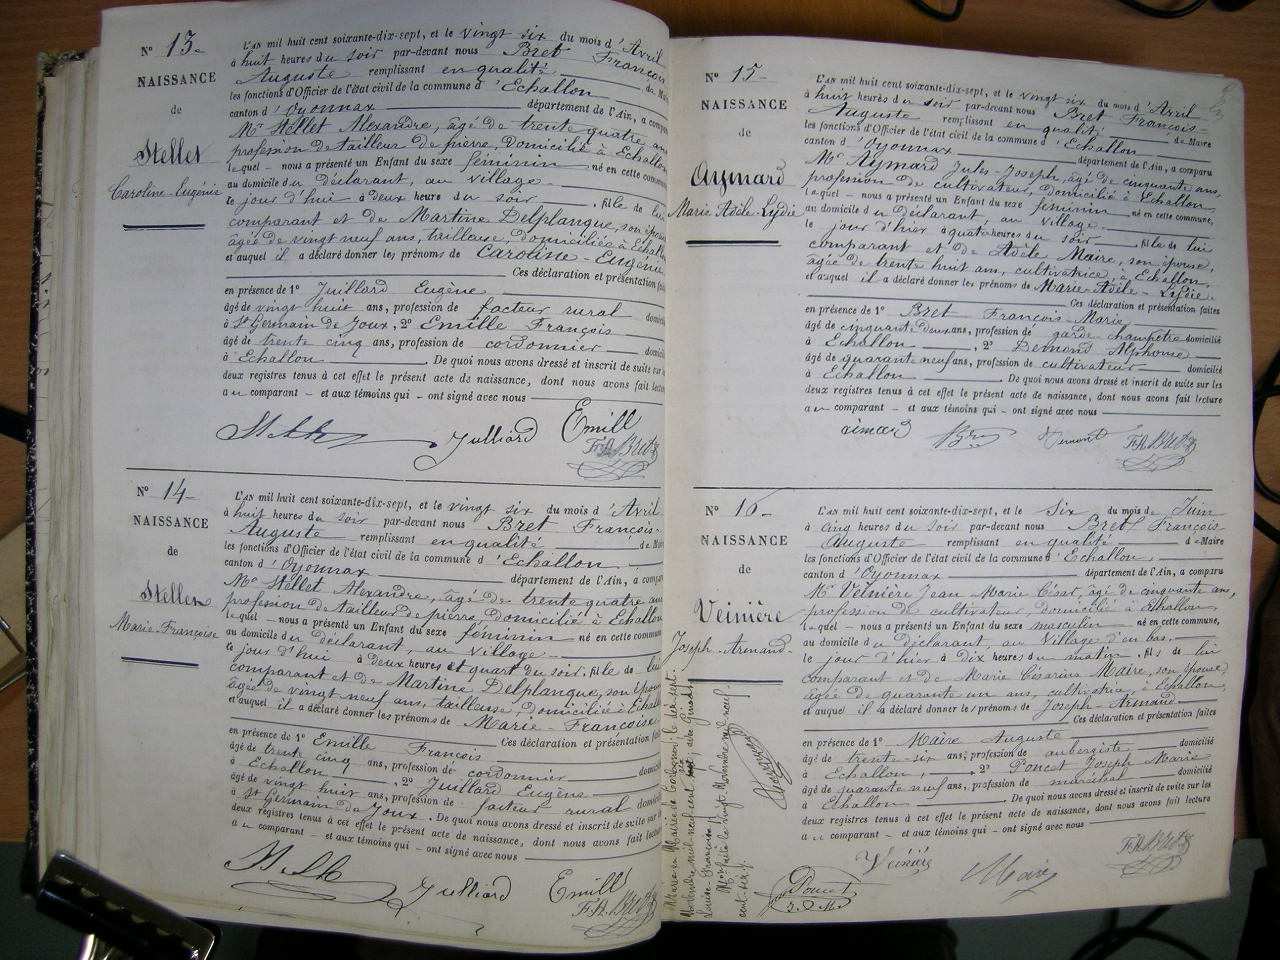 N° 13
NAISSANCE
de
Stellet
Caroline-Eugénie
L'AN mil huit cent soixante-dix-sept, et le vingt six du mois d'Avril
à huit heures du soir par-devant nous Bret François
Auguste remplissant en qualité de Maire
les fonctions d'Officier de l'état civil de la commune d'Echallon
canton d'Oyonnax département de l'Ain, a comparu
Mr Stellet Alexandre, âgé de trente quatre ans
profession de tailleur de pierre, domicilié à Echallon
lequel - nous a présenté un Enfant du sexe féminin né en cette commune
au domicile du déclarant, au village
le jour d'hui à deux heures du soir, fille de lui
comparant et de Martine Delplangue, son épouse
âgée de vingt neuf ans, tailleuse, domiciliée à Echallon
et auquel il a déclaré donner les prénoms de Caroline-Eugénie
Ces déclaration et présentation faites
en présence de 1° Juillard Eugène
âgé de vingt huit ans, profession de facteur rural domicilié
à St Germain de Joux, 2° Emille François
âgé de trente cinq ans, profession de cordonnier domicilié
à Echallon. De quoi nous avons dressé et inscrit de suite sur les
deux registres tenus à cet effet le présent acte de naissance, dont nous avons fait lecture
au comparant - et aux témoins qui - ont signé avec nous
Julliard Emill
F. A. Bret
N° 14
NAISSANCE
de
Stellet
Marie-Françoise
L'AN mil huit cent soixante-dix-sept, et le vingt six du mois d'Avril
à huit heures du soir par-devant nous Bret François-
Auguste remplissant en qualité de Maire
les fonctions d'Officier de l'état civil de la commune d'Echallon
canton d'Oyonnax département de l'Ain, a comparu
Mr Stellet Alexandre, âgé de trente quatre ans
profession de tailleur de pierre, domicilié à Echallon
lequel - nous a présenté un Enfant du sexe féminin né en cette commune
au domicile du déclarant, au village
le jour d'hui à deux heures et quart du soir, fille de lui
comparant et de Martine Delplangue, son épouse
âgée de vingt neuf ans, tailleuse, domiciliée à Echallon
et auquel il a déclaré donner les prénoms de Marie-Françoise
Ces déclaration et présentation faites
en présence de 1° Emille François
âgé de trente cinq ans, profession de cordonnier domicilié
à Echallon, 2° Juillard Eugène
âgé de vingt huit ans, profession de facteur rural domicilié
à St Germain de Joux. De quoi nous avons dressé et inscrit de suite sur les
deux registres tenus à cet effet le présent acte de naissance, dont nous avons fait lecture
au comparant - et aux témoins qui - ont signé avec nous
Julliard Emill
F. A. Bret
N° 15
NAISSANCE
de
Aymard
Marie Adèle-Lydie
L'AN mil huit cent soixante-dix-sept, et le vingt six du mois d'Avril
à huit heures du soir par-devant nous Bret François-
Auguste remplissant en qualité de Maire
les fonctions d'Officier de l'état civil de la commune d'Echallon
canton d'Oyonnax département de l'Ain, a comparu
Mr Aymard Jules-Joseph, âgé de cinquante ans,
profession de cultivateur, domicilié à Echallon,
lequel - nous a présenté un Enfant du sexe féminin né en cette commune,
au domicile du déclarant, au village
le jour d'hier à quatre heures du soir, fille de lui
comparant et de Adèle Maire, son épouse,
âgée de trente huit ans, cultivatrice, à Echallon
et auquel il a déclaré donner les prénoms de Marie-Adèle-Lydie
Ces déclaration et présentation faites
en présence de 1° Bret François-Marie
âgé de cinquante deux ans, profession de garde champêtre domicilié
à Echallon, 2° Demond Alphonse
âgé de quarante neuf ans, profession de cultivateur domicilié
à Echallon. De quoi nous avons dressé et inscrit de suite sur les
deux registres tenus à cet effet le présent acte de naissance, dont nous avons fait lecture
au comparant - et aux témoins qui - ont signé avec nous
F. A. Bret
N° 16
NAISSANCE
de
Veinière
Joseph-Armand
L'AN mil huit cent soixante-dix-sept, et le six du mois de Juin
à cinq heures du soir par-devant nous Bret François-
Auguste remplissant en qualité de Maire
les fonctions d'Officier de l'état civil de la commune d'Echallon
canton d'Oyonnax département de l'Ain, a comparu
Mr Veinière Jean Marie César, âgé de cinquante ans,
profession de cultivateur domicilié à Echallon
lequel - nous a présenté un Enfant du sexe masculin né en cette commune,
au domicile du déclarant, au Village d'en bas,
le jour d'hier à dix heures du matin, fils de lui
comparant et de Marie Césarine Maire, son épouse,
âgée de quarante un ans, cultivatrice, à Echallon,
et auquel il a déclaré donner les prénoms de Joseph-Armand
Ces déclaration et présentation faites
en présence de 1° Maire Auguste
âgé de trente-six ans, profession de aubergiste domicilié
à Echallon, 2° Poncet Joseph Marie
âgé de quarante neuf ans, profession de maréchal domicilié
à Echallon. De quoi nous avons dressé et inscrit de suite sur les
deux registres tenus à cet effet le présent acte de naissance, dont nous avons fait lecture
au comparant - et aux témoins qui - ont signé avec nous
F. A. Bret
Veinière Maire
Poncet